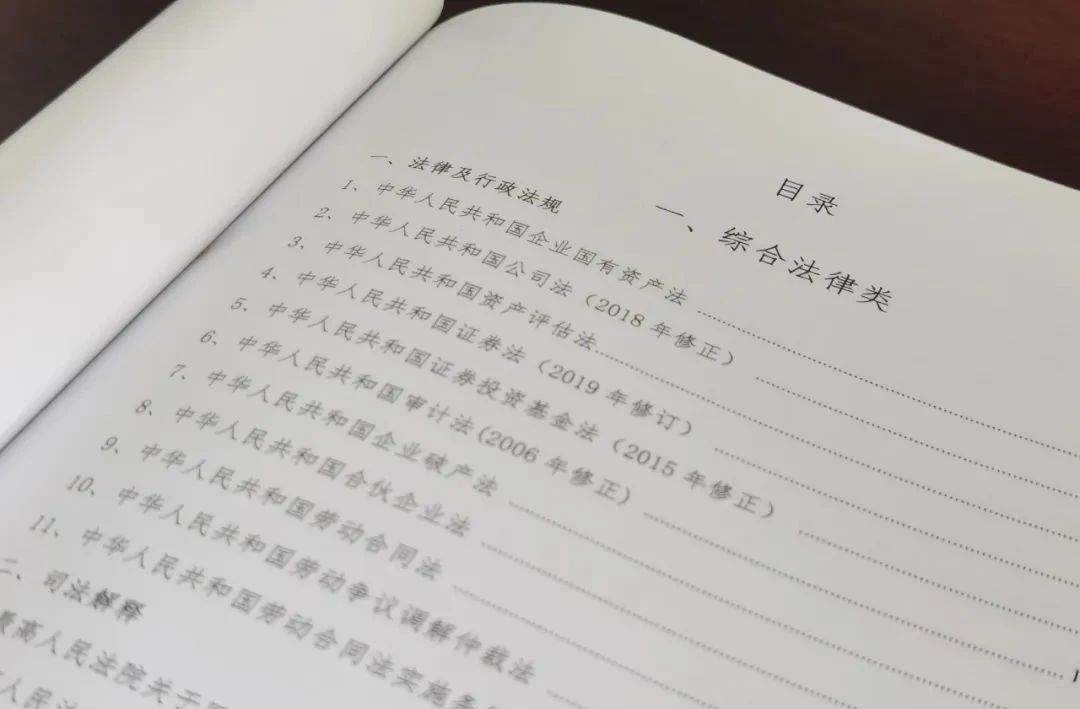 目录
一、综合法律类
一、法律及行政法规
1、中华人民共和国企业国有资产法
2、中华人民共和国公司法（2018 年修正）
3、中华人民共和国资产评估法
4、中华人民共和国证券法（2019 年修订）
5、中华人民共和国证券投资基金法（2015 年修正）
6、中华人民共和国审计法(2006 年修正)
7、中华人民共和国企业破产法
8、中华人民共和国合伙企业法
9、中华人民共和国劳动合同法
10、中华人民共和国劳动争议调解仲裁法
11、中华人民共和国劳动合同法实施条
二、司法解释
最高人民法院关于
人民法